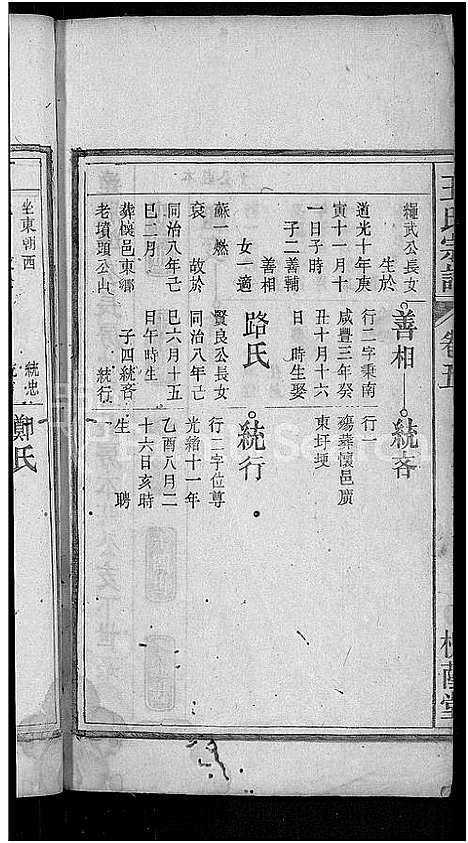 王氏宗譜
卷五
武公長女
生於
道光十年庚
寅十一月十
一日子時
子二善輔
善相
女一適
蘇一燃
故於
同治八年己
巳二月
葬懷邑東鄉
老墳頭公山
善相
行二字秉南
咸豐三年癸
丑十月十六
日 時生娶
路氏
賢良公長女
同治八年己
巳六月十五
日午時生
子四統吝
統行
統吝
行一
殤葬懷邑廣
東圩埂
統行
行二字位尊
光緒十一年
乙酉八月二
十六日亥時
生 聘
坐東朝西
統忠
鄭氏